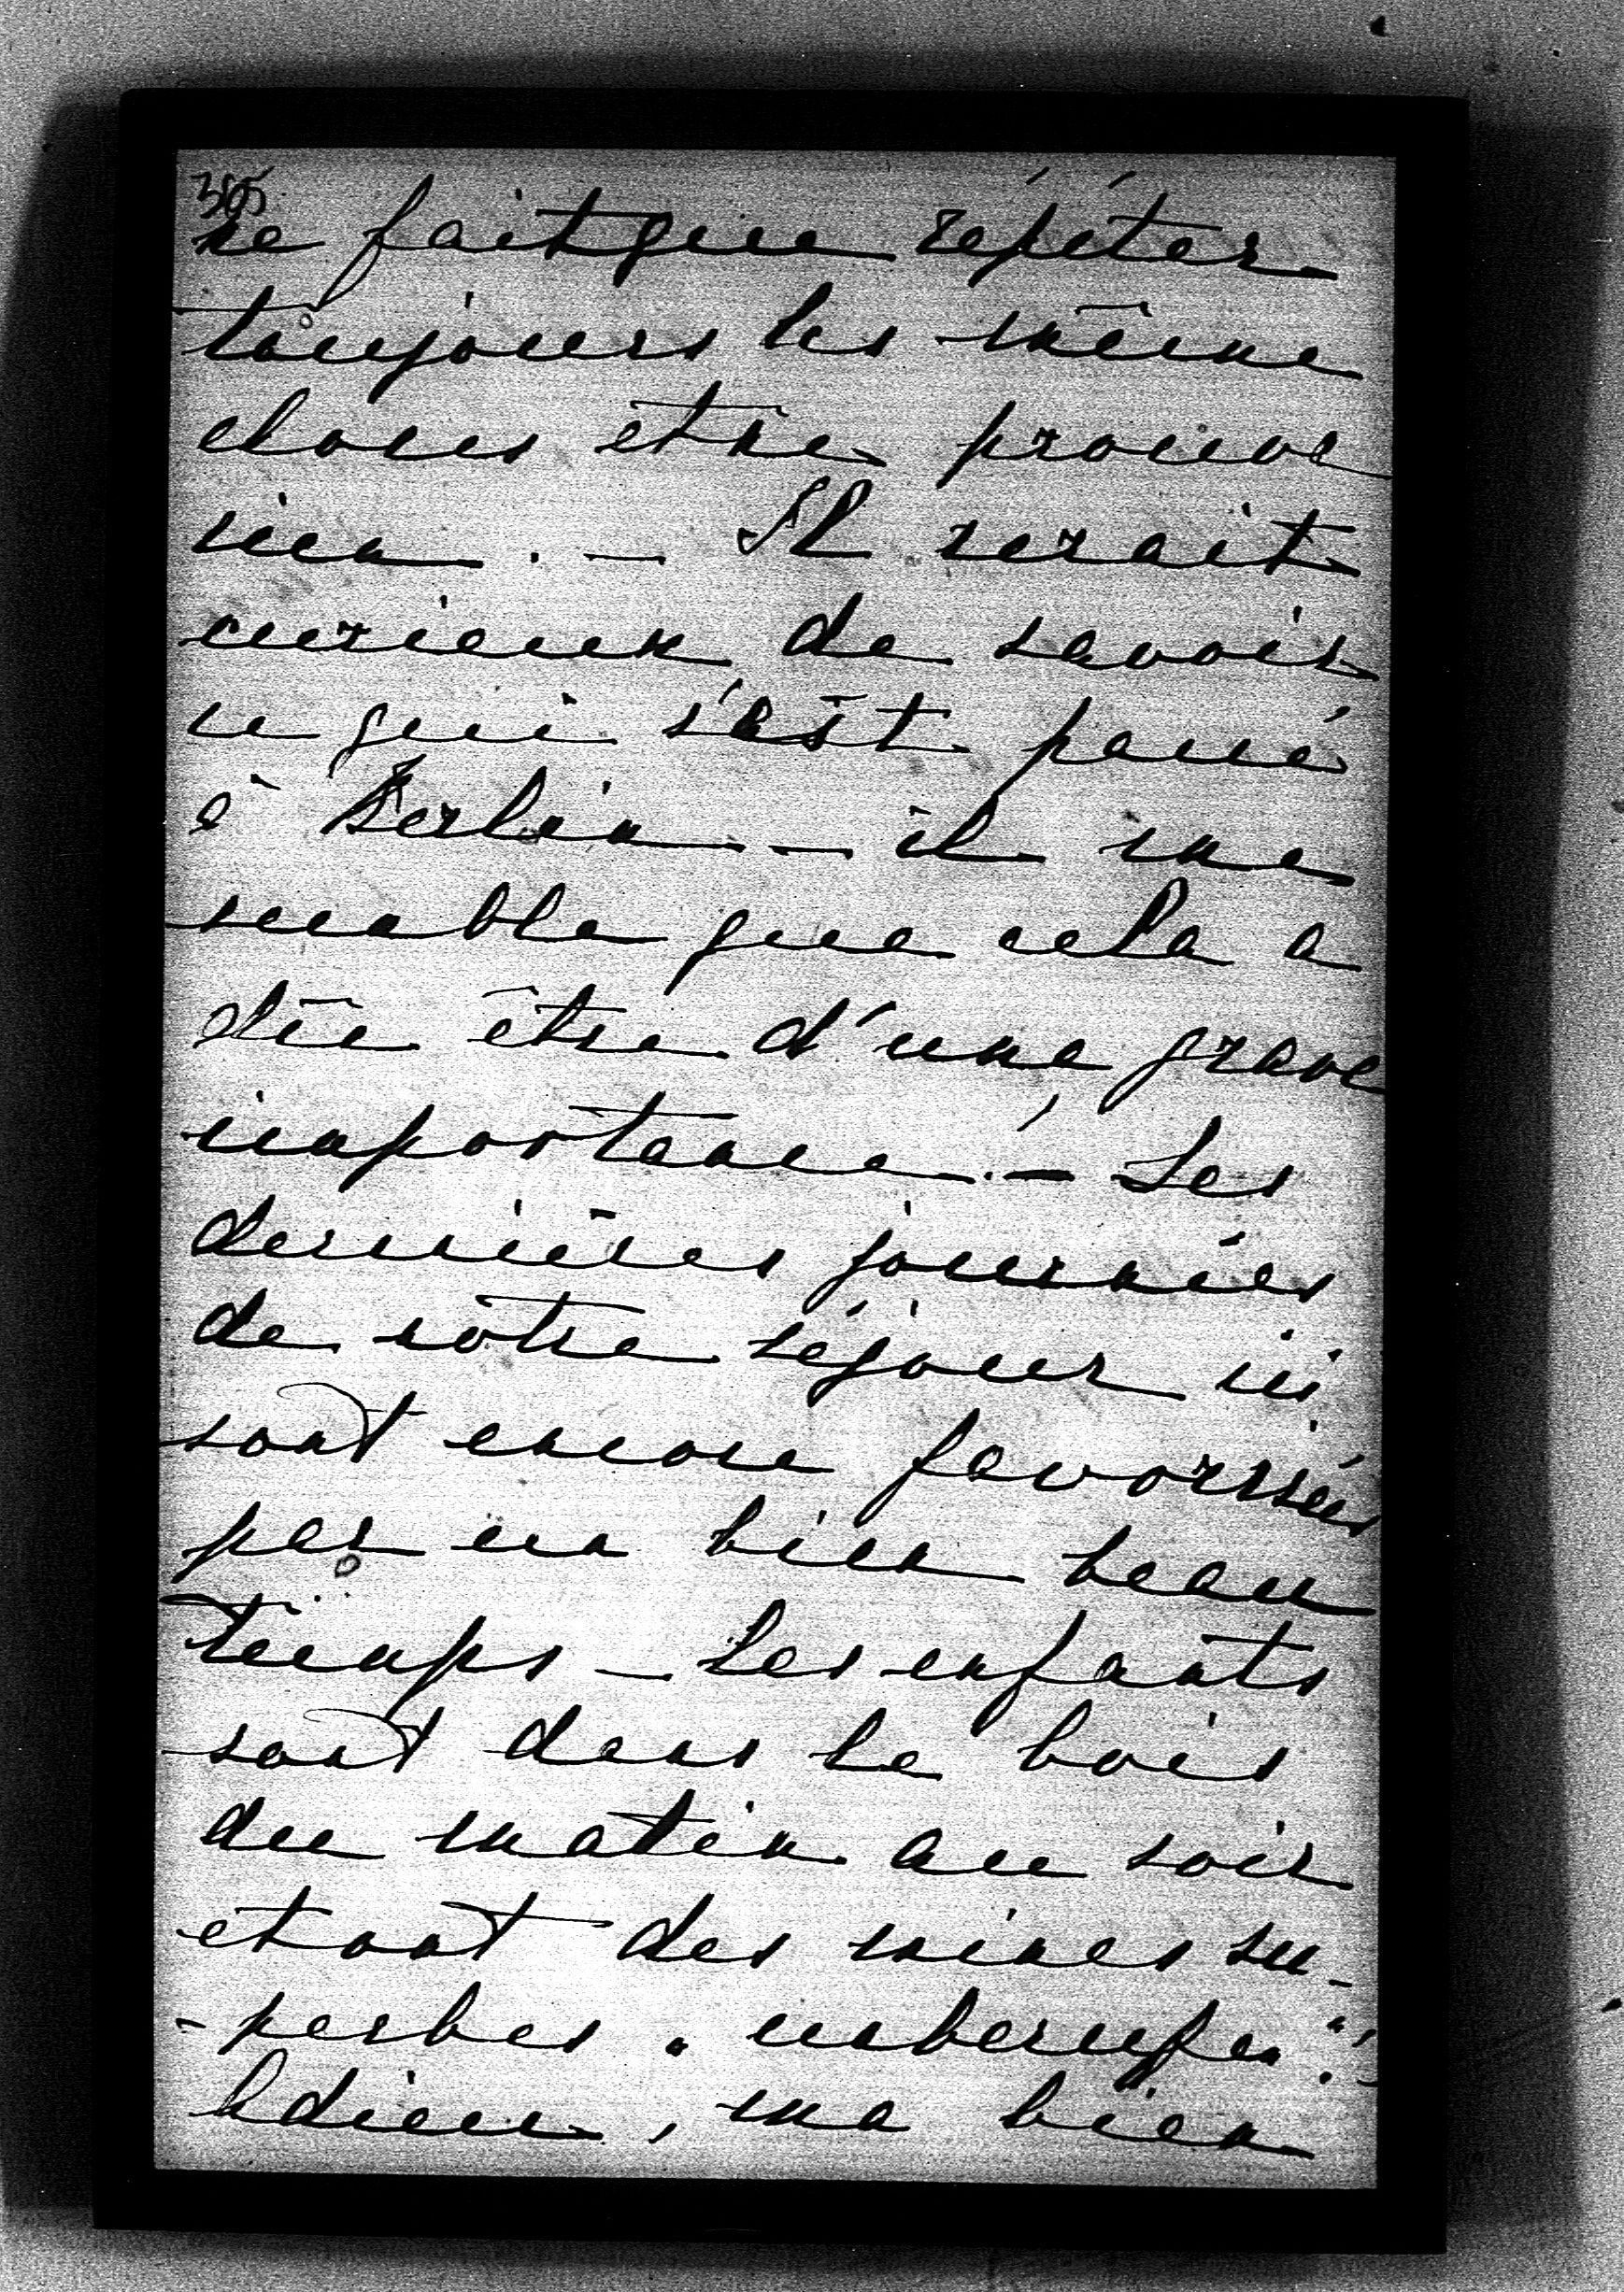 365
ne fait que répéter
toujours les même
choses et ne prouve
rien. — Il serait
curieux de savoir
ce qui s'est passé
à Berlin — il me
semble que cela a
dû être d'une grave
importance. — Les
dernières journées
de notre séjour ici
sont encore favorisées
par un bien beau
temps — Les enfants
sont dans le bois
du matin au soir
et ont des mines su-
-perbes. "unberufen"!
Adieu, ma bien